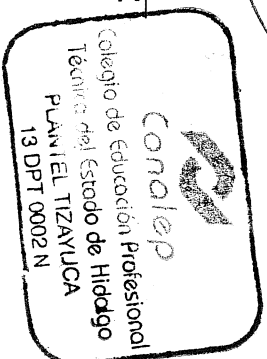 Conalep
Colegio de Educación Profesional
Técnica del Estado de Hidalgo
PLANTEL TIZAYUCA
13 DPT 0002 N